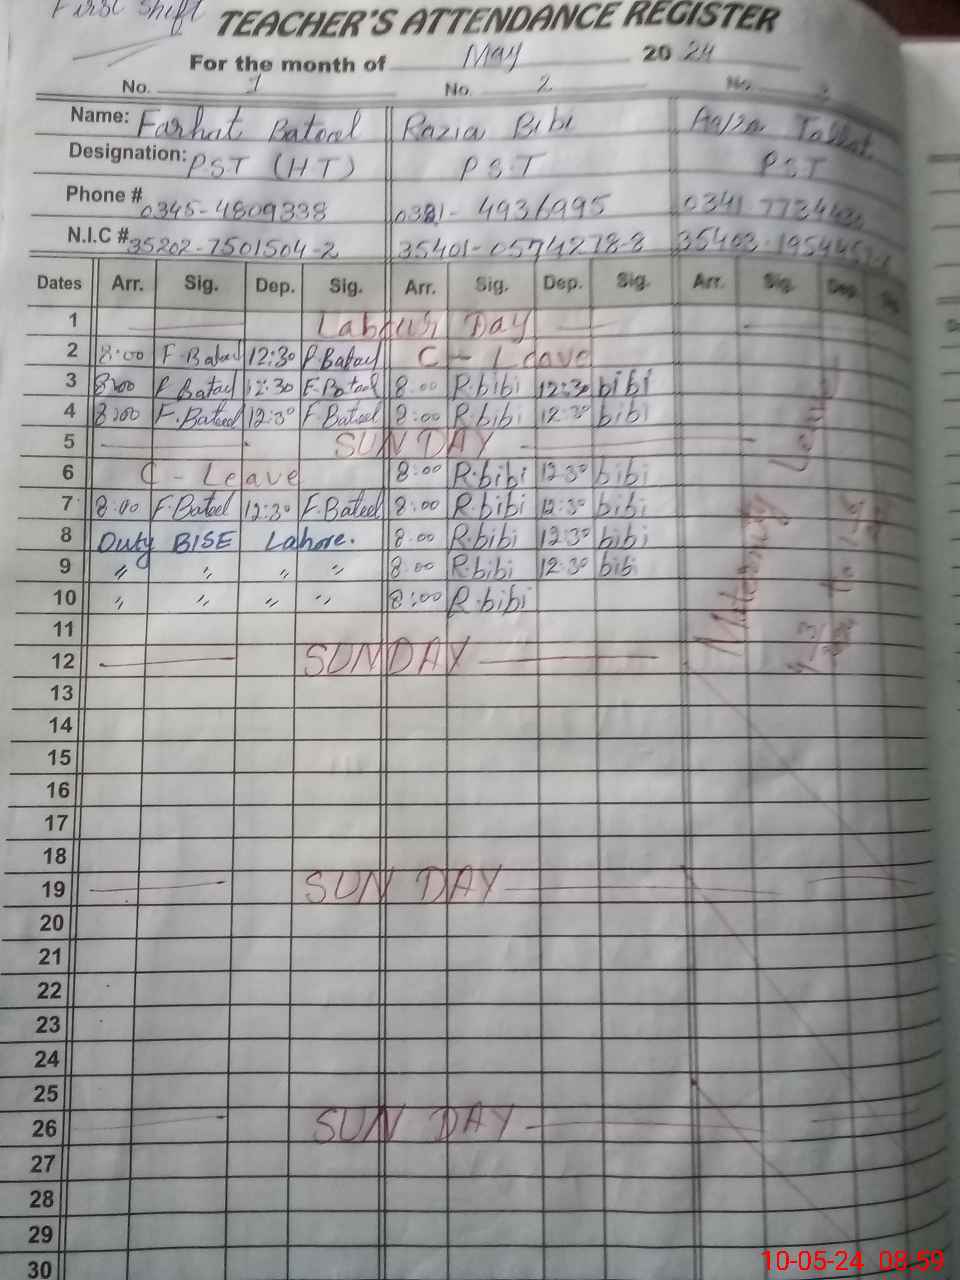 First Shift
TEACHER'S ATTENDANCE REGISTER
For the month of May 2024
No. 1 No. 2 No.
Name: Farhat Batool Razia Bibi
Designation: P.S.T (H.T) P.S.T PST
Phone # 0345-4809338 0321- 4936995 0341-
N.I.C # 35202-7501504-2 35401-0574278-8 35403-
Dates Arr. Sig. Dep. Sig. Arr. Sig. Dep. Sig. Arr. Sig. Dep. Sig.
1 Labour Day
2 8:00 F.Batool 12:30 F.Batool C - Leave
3 8:00 F.Batool 12:30 F.Batool 8:00 R.bibi 12:30 bibi
4 8:00 F.Batool 12:30 F.Batool 8:00 R.bibi 12:30 bibi
5 SUNDAY
6 C - Leave 8:00 R.bibi 12:30 bibi
7 8:00 F.Batool 12:30 F.Batool 8:00 R.bibi 12:30 bibi
8 Duty BISE Lahore. 8:00 R.bibi 12:30 bibi
9 〃 〃 〃 〃 8:00 R.bibi 12:30 bibi
10 〃 〃 〃 〃 8:00 R.bibi
Maternity Leave
11
12 SUNDAY
13
14
15
16
17
18
19 SUNDAY
20
21
22
23
24
25
26 SUNDAY
27
28
29
30
10-05-24 08:59